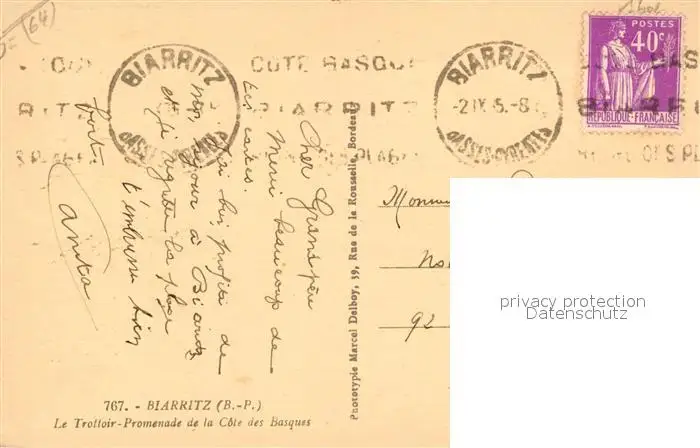 (64)
BIARRITZ
BASSES-PYRÉNÉES
CÔTE BASQUE
BIARRITZ
BIARRITZ
-2 IX 5.-8
BASSES-PYRENEES
POSTES
40c
REPUBLIQUE-FRANÇAISE
Cher Grand père
Merci beaucoup de
tes cartes.
J'ai bien profité de
mon séjour à Biarritz
et je regrette la plage
t'embrasse bien
fort.
Anita
Phototypie Marcel Delboy, 39, Rue de la Rousselle, Bordeaux
92
privacy protection
Datenschutz
767. - BIARRITZ (B.-P.)
Le Trottoir-Promenade de la Côte des Basques